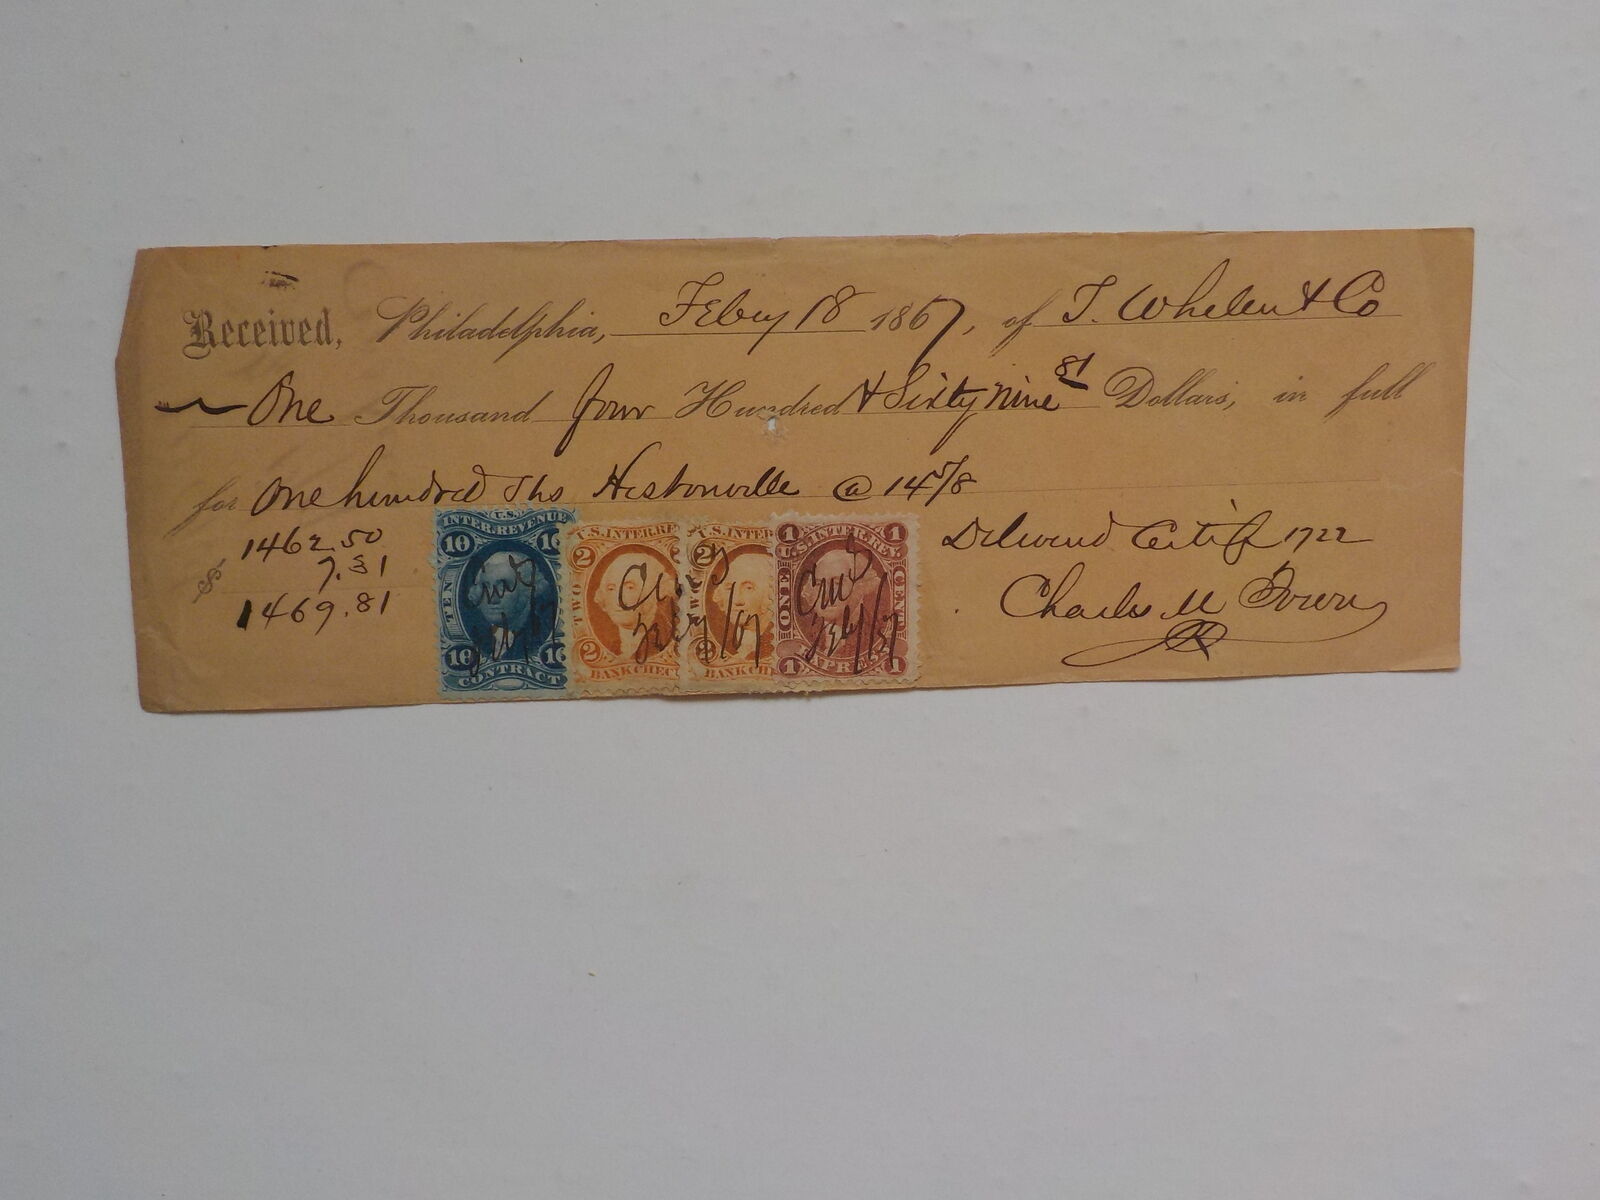 Received, Philadelphia, Feby 18 1867, of T. Whelen & Co
One Thousand four Hundred & Sixty nine 81 Dollars, in full
for One hundred Shs Hestonville @ 14 5/8
$ 1462.50
7.31
1469.81
Delivered Certif 1722
Charles M
U.S.
INTER. REVENUE
10 10
TEN
10 10
CONTRACT
U.S. INTER. RE
2
TWO
2
BANK CHEC
U.S. INTER
2
TWO
2
BANK CHE
1 1
U.S. INTER. REV.
ONE CENT
1 1
EXPRESS
Feby 18/67